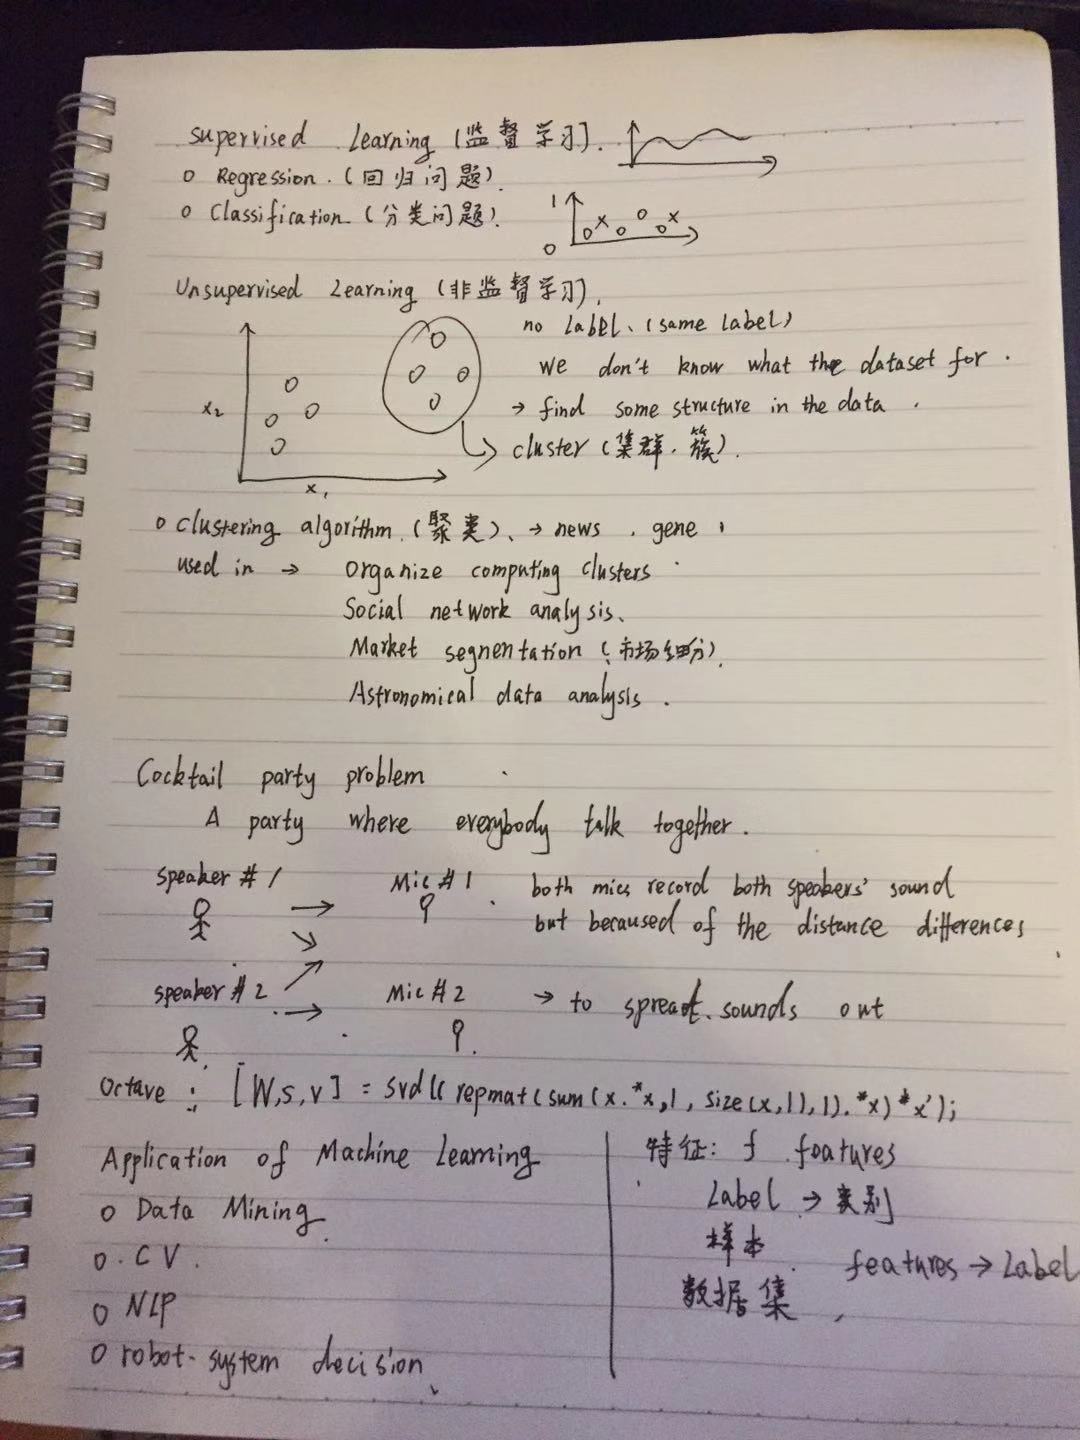 supervised Learning (监督学习).
o Regression. (回归问题).
o Classification (分类问题).
1
0
Unsupervised Learning (非监督学习).
no Label、(same Label)
we don't know what the dataset for.
→ find some structure in the data.
cluster (集群. 簇).
x₂
x₁
o clustering algorithm. (聚类)、→ news . gene
used in → organize computing clusters
Social network analysis.
Market segnentation (市场细分).
Astronomical data analysis.
Cocktail party problem
A party where everybody talk together.
speaker #1
Mic #1
both mics record both speakers' sound
but becaused of the distance differences
speaker #2
Mic #2
→ to spread sounds out
Octave : [W,s,v] = svd((repmat(sum(x.*x,1, size(x,1),1).*x)*x');
Application of Machine Learning
o Data Mining
o CV.
o NLP
o robot-system decision
特征: f features
Label → 类别
样本
features → Label
数据集